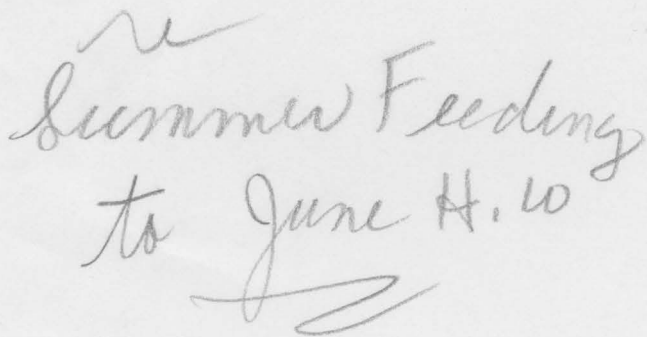 re
Summer Feeding
to June H. 10